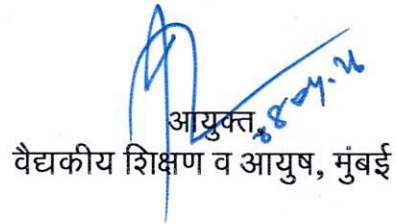 आयुक्त,
वैद्यकीय शिक्षण व आयुष, मुंबई